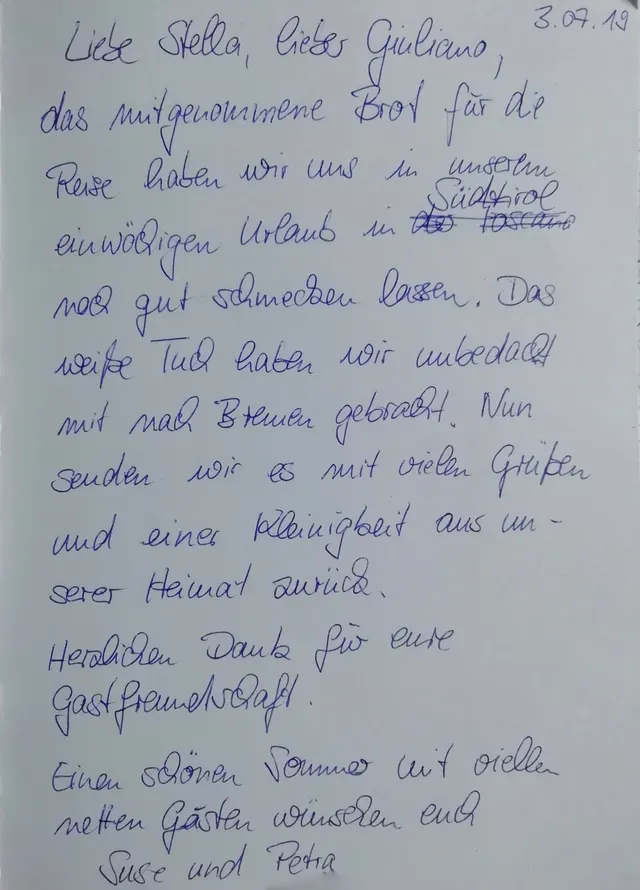 3.07.19
Liebe Stella, lieber Giuliano,
das mitgenommene Brot für die
Reise haben wir uns in unserem
Südtirol
einwöchigen Urlaub in der Toscana
noch gut schmecken lassen. Das
weiße Tuch haben wir unbedacht
mit nach Bremen gebracht. Nun
senden wir es mit vielen Grüßen
und einer Kleinigkeit aus un-
serer Heimat zurück.
Herzlichen Dank für eure
Gastfreundschaft.
Einen schönen Sommer mit vielen
netten Gästen wünschen euch
Suse und Petra